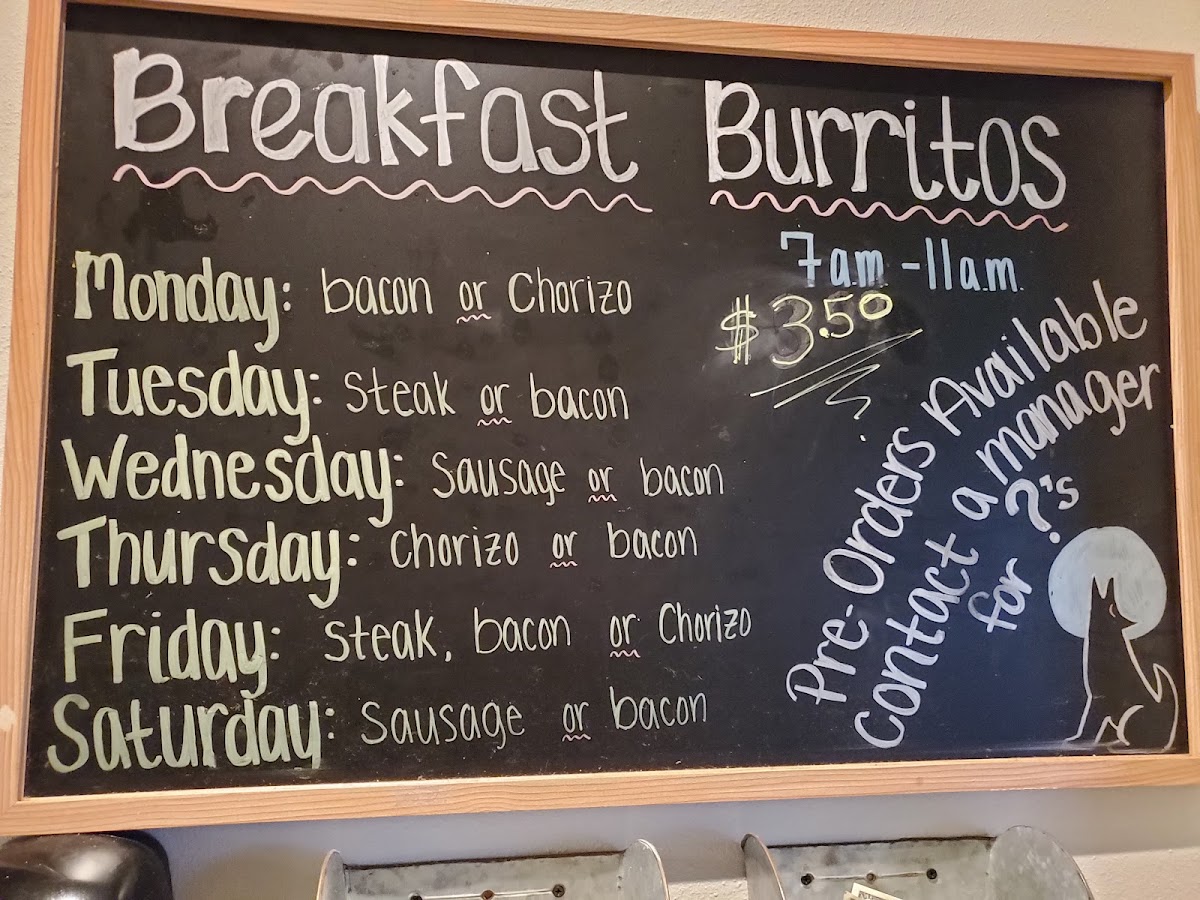 Breakfast Burritos
7am - 11am.
$3.50
Monday: bacon or Chorizo
Tuesday: Steak or bacon
Wednesday: Sausage or bacon
Thursday: Chorizo or bacon
Friday: Steak, bacon or Chorizo
Saturday: Sausage or bacon
Pre-Orders Available
Contact a manager
for ?'s